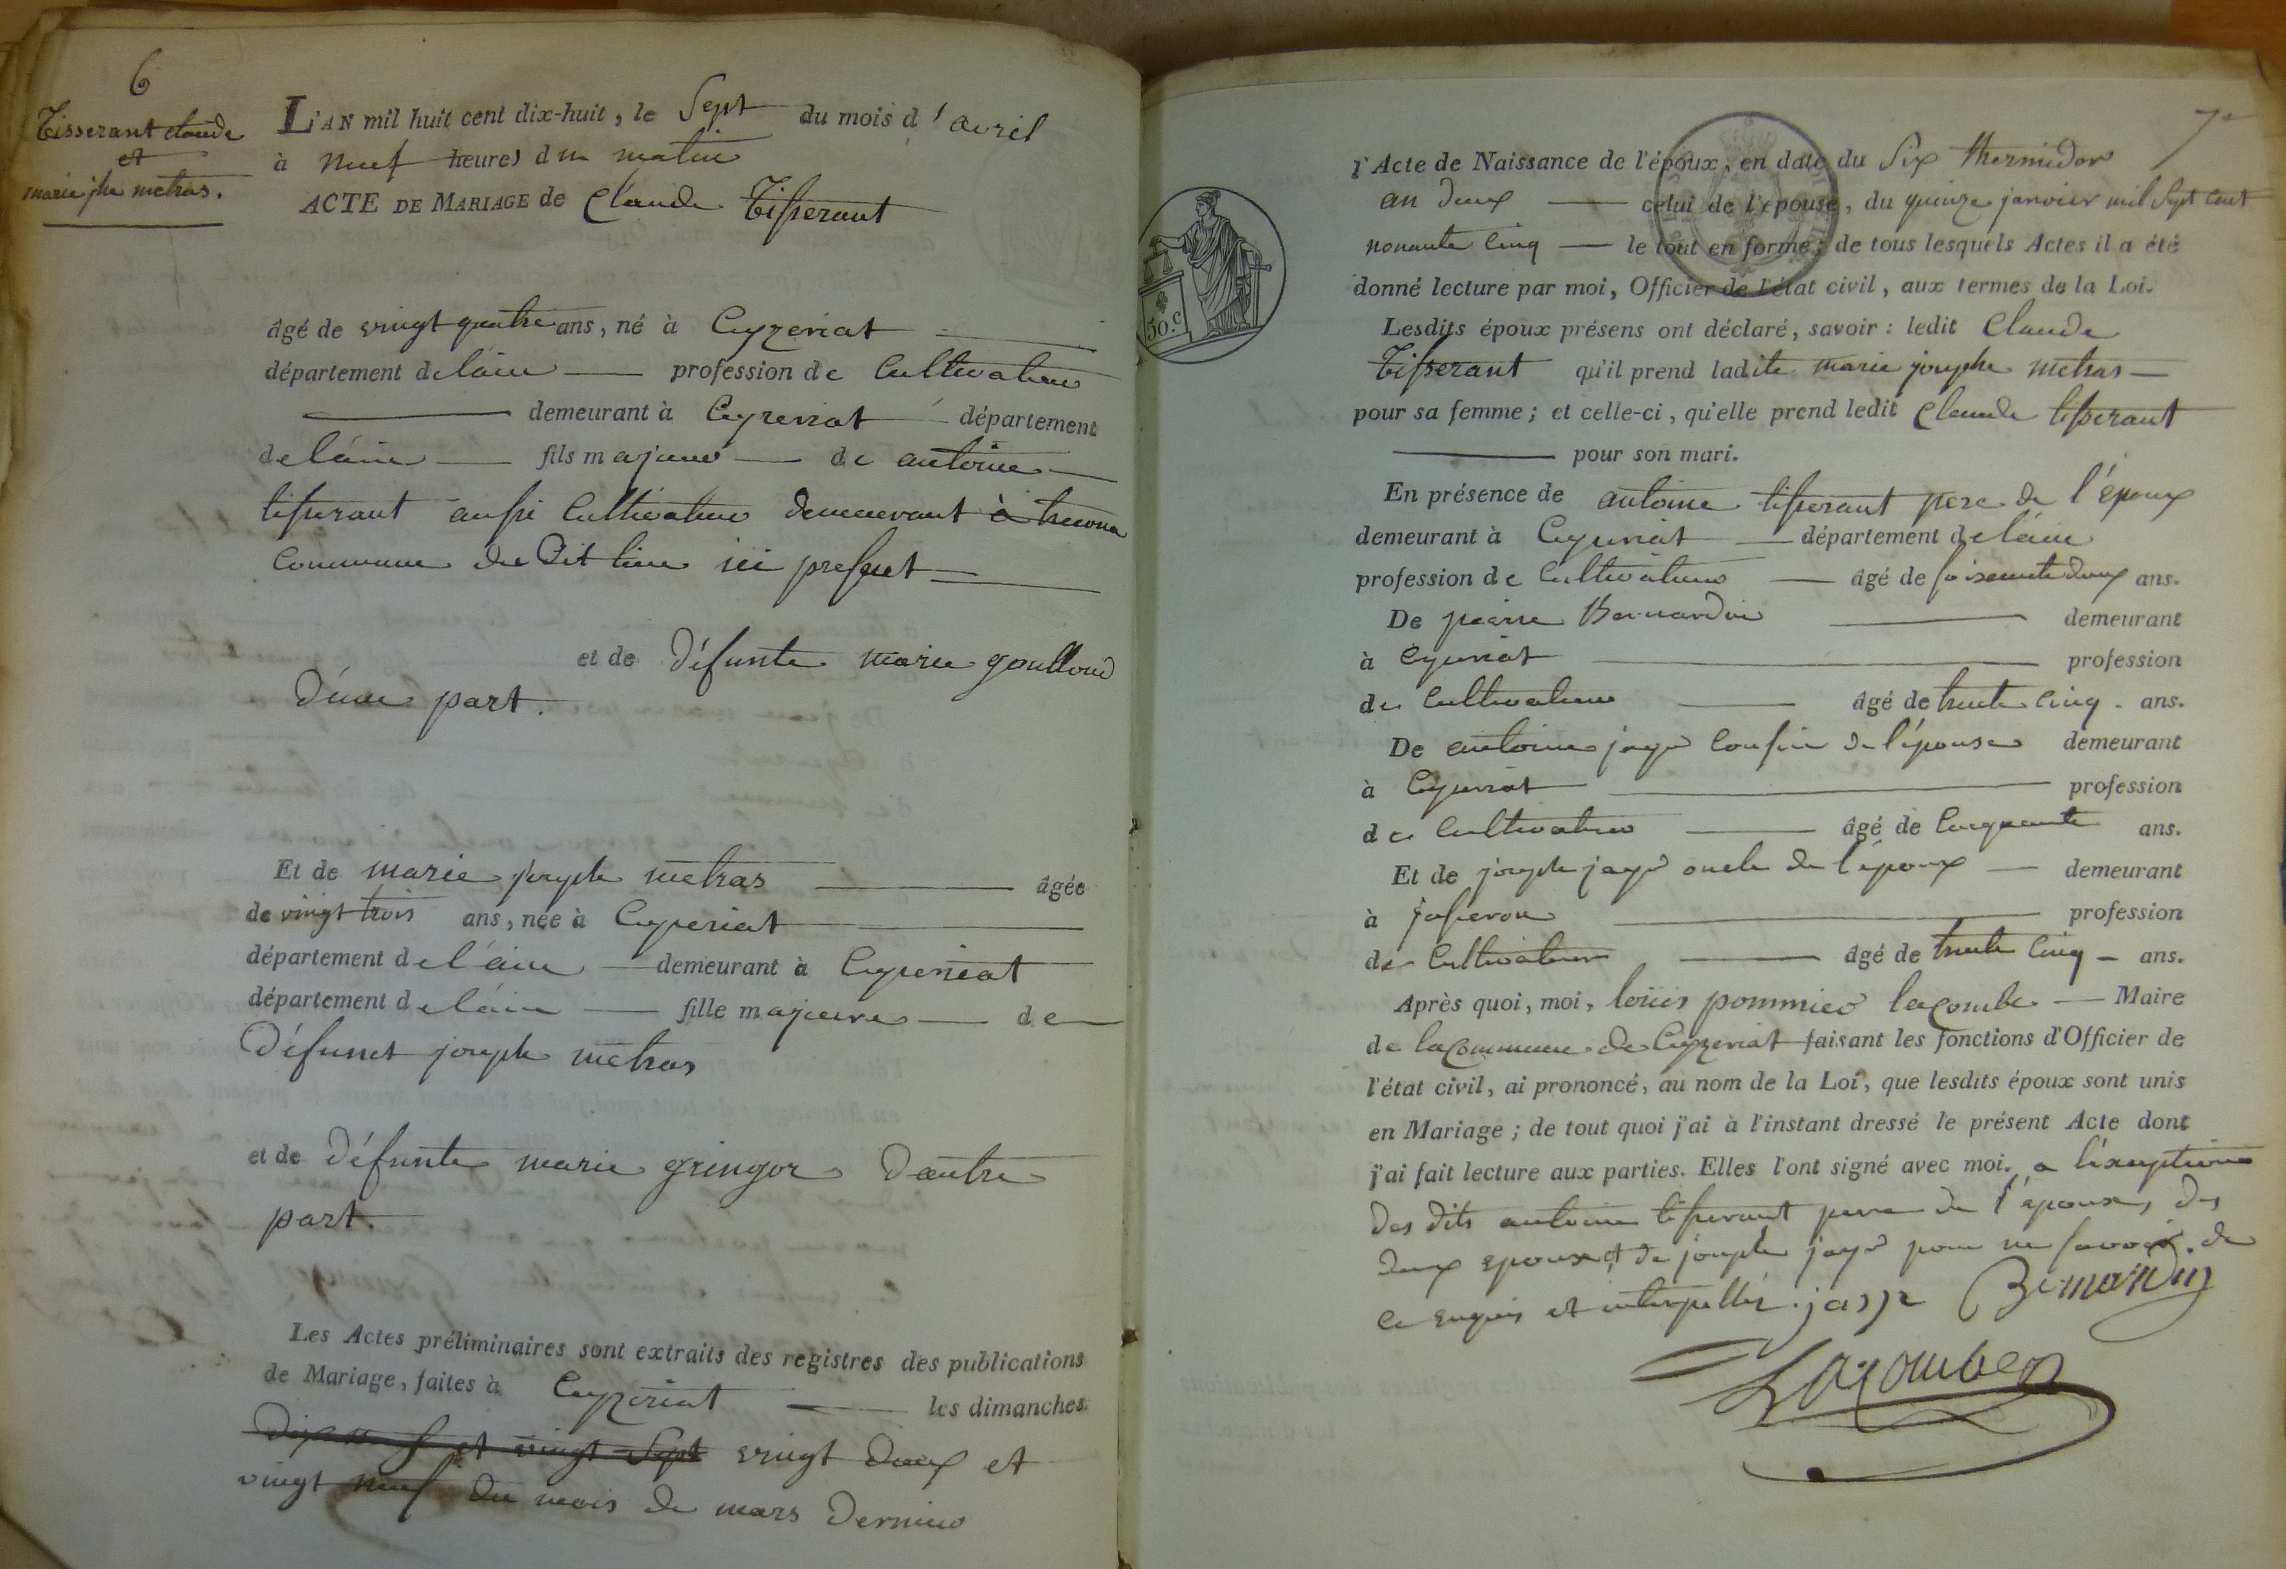 6
Tisserant claude
et
marie jhe metras.
L'AN mil huit cent dix-huit, le Sept du mois d'avril
à neuf heures du matin
ACTE DE MARIAGE de Claude Tisserant
âgé de vingt quatre ans, né à Ceyzeriat
département de l'ain profession de Cultivateur
demeurant à Ceyzeriat département
de l'ain fils majeur de antoine
tisserant aussi Cultivateur demeurant à
Commune de ici present
et de défunte marie goulloud
d'une part.
Et de marie joseph metras âgée
de vingt trois ans, née à Ceyzeriat
département de l'ain demeurant à Ceyzeriat
département de l'ain fille majeure de
Défunt joseph metras
et de défunte marie gringoz d'autre
part.
Les Actes préliminaires sont extraits des registres des publications
de Mariage, faites à Ceyzériat les dimanches
et vingt Sept vingt deux et
vingt neuf du mois de mars dernier
7e
50.c
l'Acte de Naissance de l'époux, en date du Six thermidor
an deux celui de l'épouse, du quinze janvier mil Sept cent
nonante cinq le tout en forme; de tous lesquels Actes il a été
donné lecture par moi, Officier de l'état civil, aux termes de la Loi.
Lesdits époux présens ont déclaré, savoir : ledit Claude
Tisserant qu'il prend ladite marie josephe metras
pour sa femme ; et celle-ci, qu'elle prend ledit Claude tisserant
pour son mari.
En présence de antoine tisserant pere de l'époux
demeurant à Ceyzeriat département de l'ain
profession de Cultivateur âgé de soixante deux ans.
De pierre Bernardin demeurant
à Ceyzeriat profession
de Cultivateur âgé de trente cinq ans.
De antoine jayr cousin de l'épouse demeurant
à Ceyzeriat profession
de Cultivateur âgé de Cinquante ans.
Et de joseph jayr oncle de l'époux demeurant
à jasseron profession
de Cultivateur âgé de trente cinq ans.
Après quoi, moi, loüis pommier lacombe Maire
de la Commune de Ceyzeriat faisant les fonctions d'Officier de
l'état civil, ai prononcé, au nom de la Loi, que lesdits époux sont unis
en Mariage ; de tout quoi j'ai à l'instant dressé le présent Acte dont
j'ai fait lecture aux parties. Elles l'ont signé avec moi. a l'exception
des dits antoine tisserant pere de l'époux, des
deux epoux et de joseph jayr pour ne savoir. de
ce enquis et interpellés. Bernardin
Lacombe